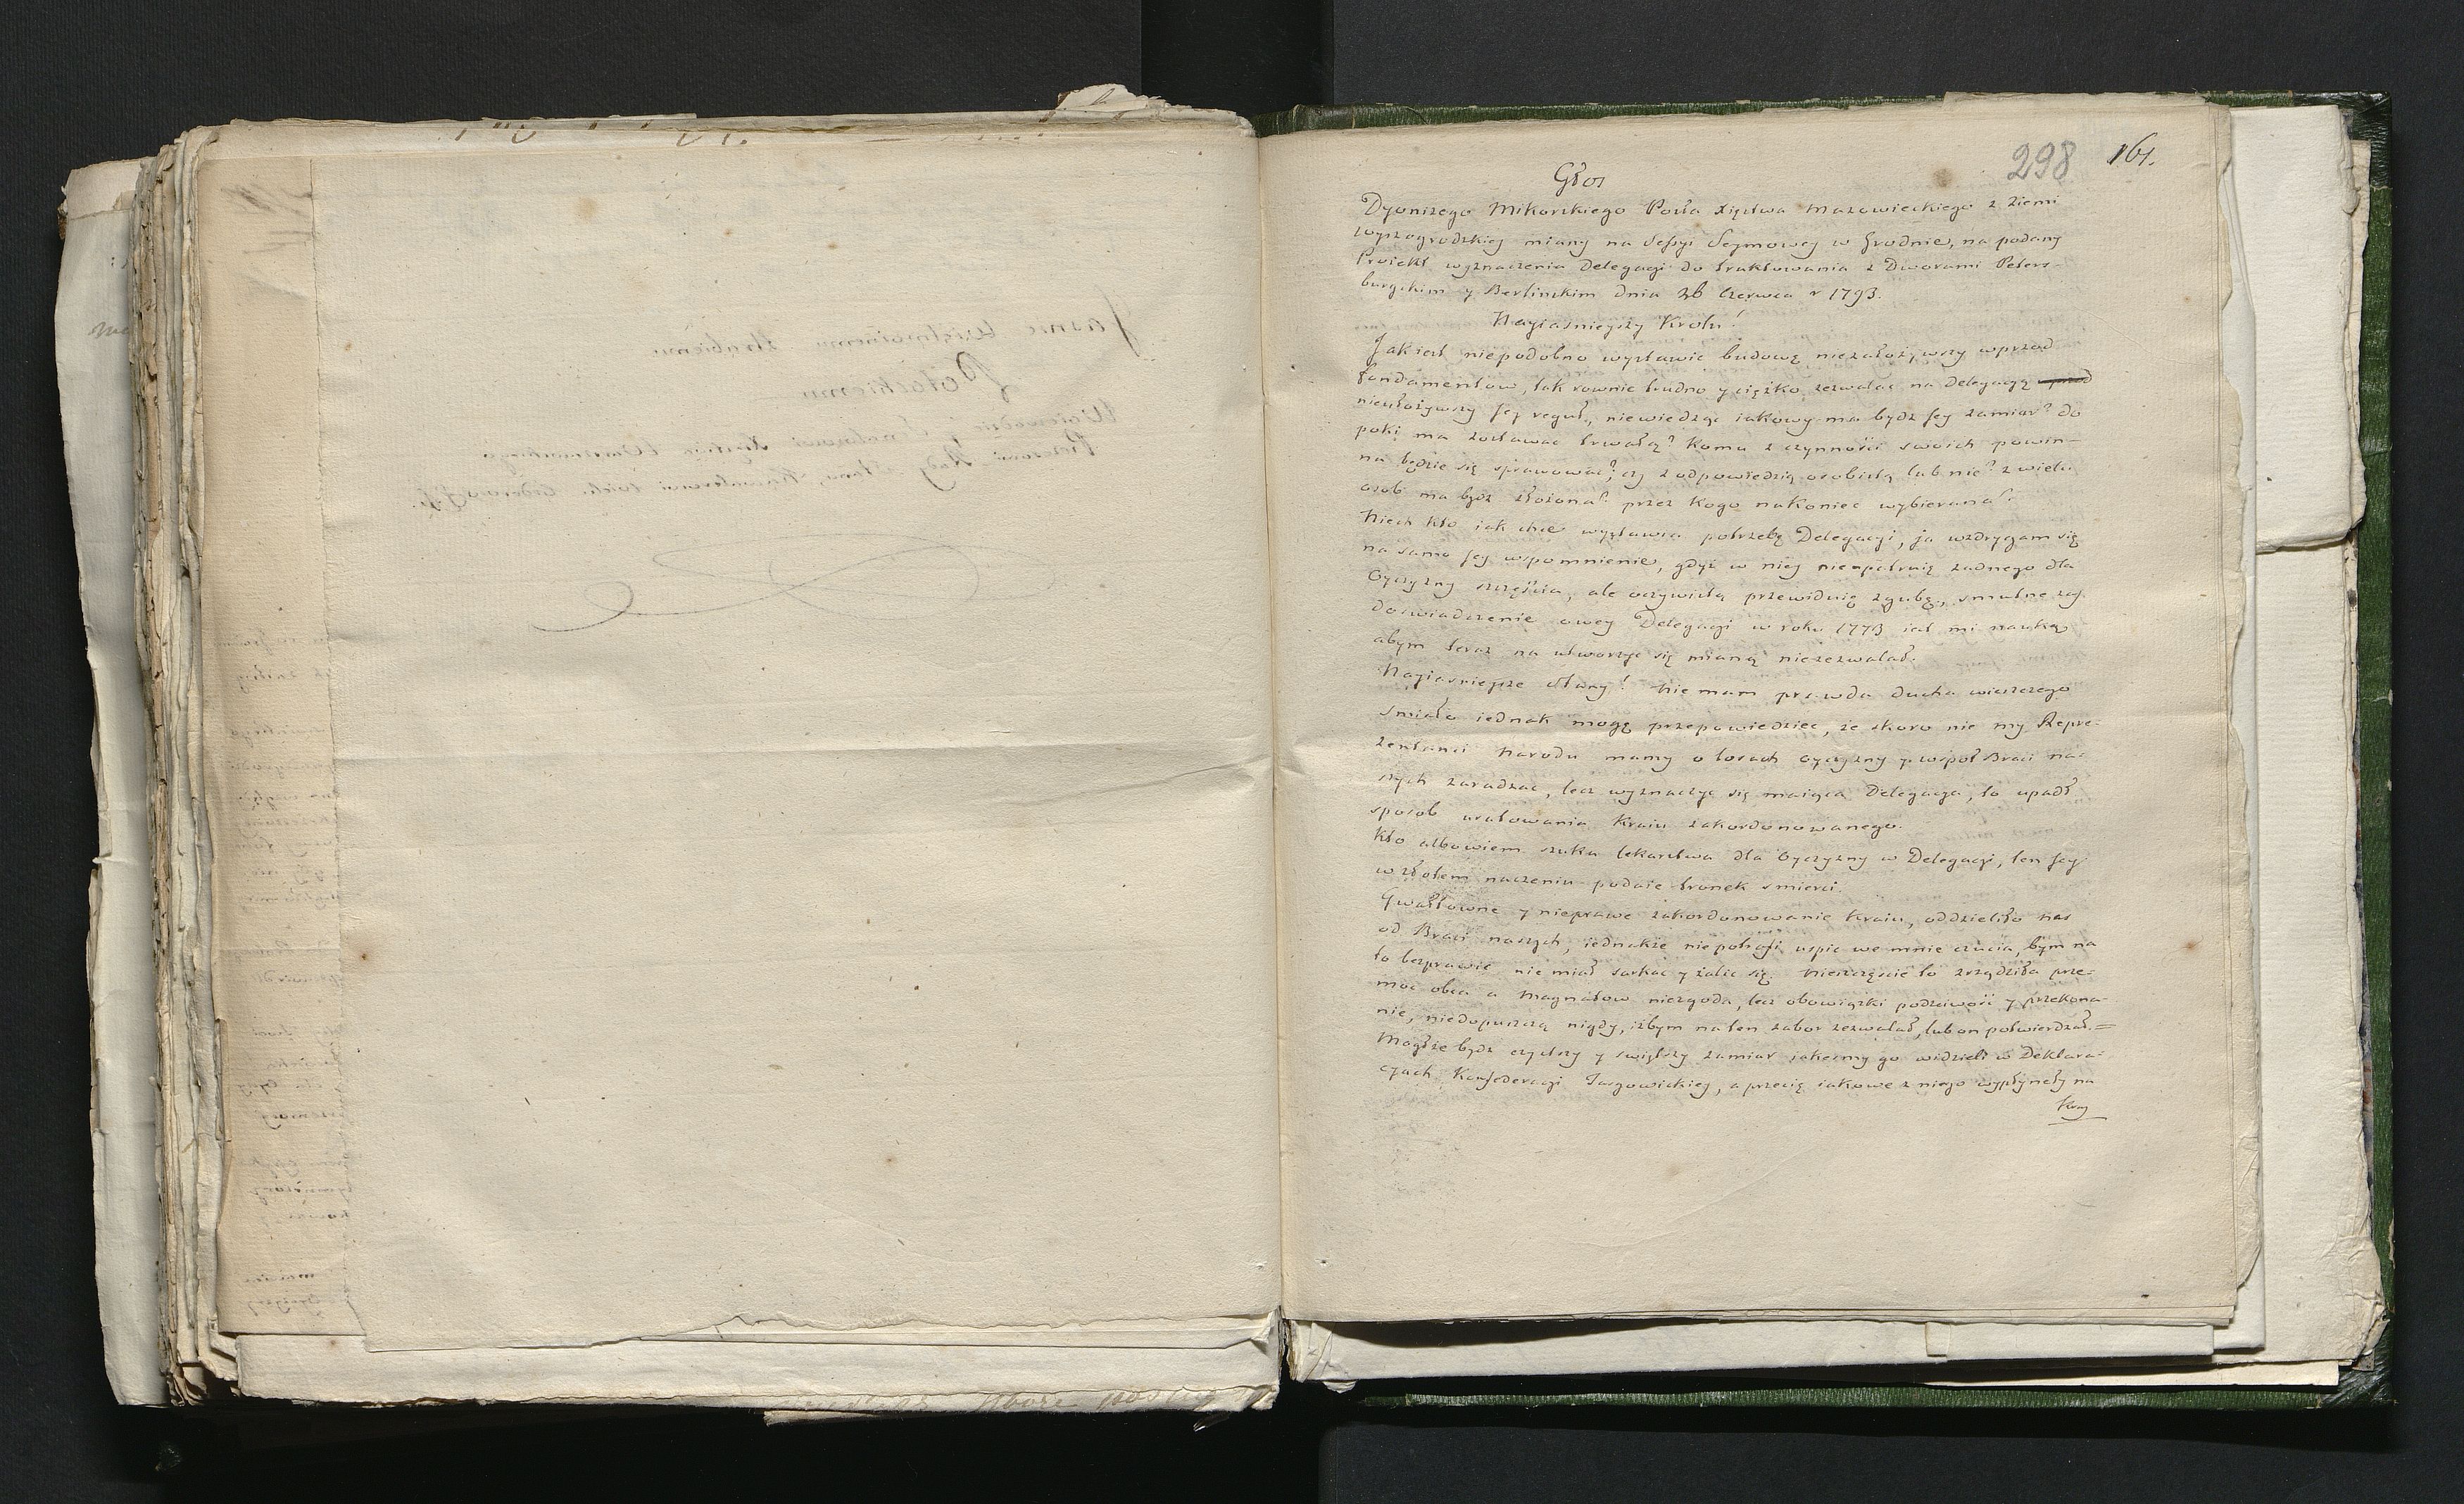 298 161.
Głos
Dyonizego Mikorskiego Posła Xięstwa Mazowieckiego z Ziemi
wyszogrodzkiey miany na Sessyi Seymowey w Grodnie, na podany
Proiekt wyznaczenia Delegacyi do traktowania z Dworami Peters-
burgskim y Berlinskim dnia 26 Czerwca r 1793.
Nayiasnieyszy Krolu!
Jak iest niepodobno wystawic budowę niezałożywszy wprzod
fundamentow, tak rownie trudno y cięzko zezwalac na Delegacyą
nieułożywszy Jey reguł, niewiedząc iakowy ma bydz Jey zamiar? do
poki ma zostawac trwałą? Komu z czynności swoich powin-
na będzie się sprawować? czy z odpowiedzią osobistą lub nie? z wielu
osob ma bydz złożona? przez kogo nakoniec wybierana?
Niech kto iak chce wystawia potrzebę Delegacyi, ja wzdrygam się
na samo Jey wspomnienie, gdyż w niey nieupatruię zadnego dla
Oyczyzny szczęścia, ale oczywistą przewiduię zgubę, smutne zaś
doswiadczenie owey Delegacyi w roku 1773 iest mi nauką
abym teraz na utworzyc się mianą niezezwalał.
Nayiasnieysze Stany! Nie mam prawda ducha wieszczego
smiało iednak mogę przepowiedziec, że skoro nie my Repre-
zentanci Narodu mamy o losach Oyczyzny y wspoł Braci na-
szych zaradzac, lecz wyznaczyc się maiąca Delegacya, to upadł
sposob uratowania Kraiu zakordonowanego.
Kto albowiem szuka lekarstwa dla Oyczyzny w Delegacyi, ten Jey
w złotem naczeniu podaie trunek smierci.
Gwałtowne y nieprawe zakordonowanie Kraiu, oddzieliło nas
od Braci naszych, iednakże niepotrafi uspic we mnie czucia, bym na
to bezprawie nie miał sarkac y żalic się. Nieszczęscie to zrządziła prze-
moc obca a Magnatow niezgoda, lecz obowiązki podściwosci y przekona-
nie, niedopuszczą nigdy, iżbym na ten zabor zezwalał, lub on potwierdzał.=
Mogłże bydz czystszy y swiętszy zamiar iakesmy go widzieli w Deklara-
cyach Konfederacyi Targowickiey, a przecię iakowe z niego wypłynęły na
Kray